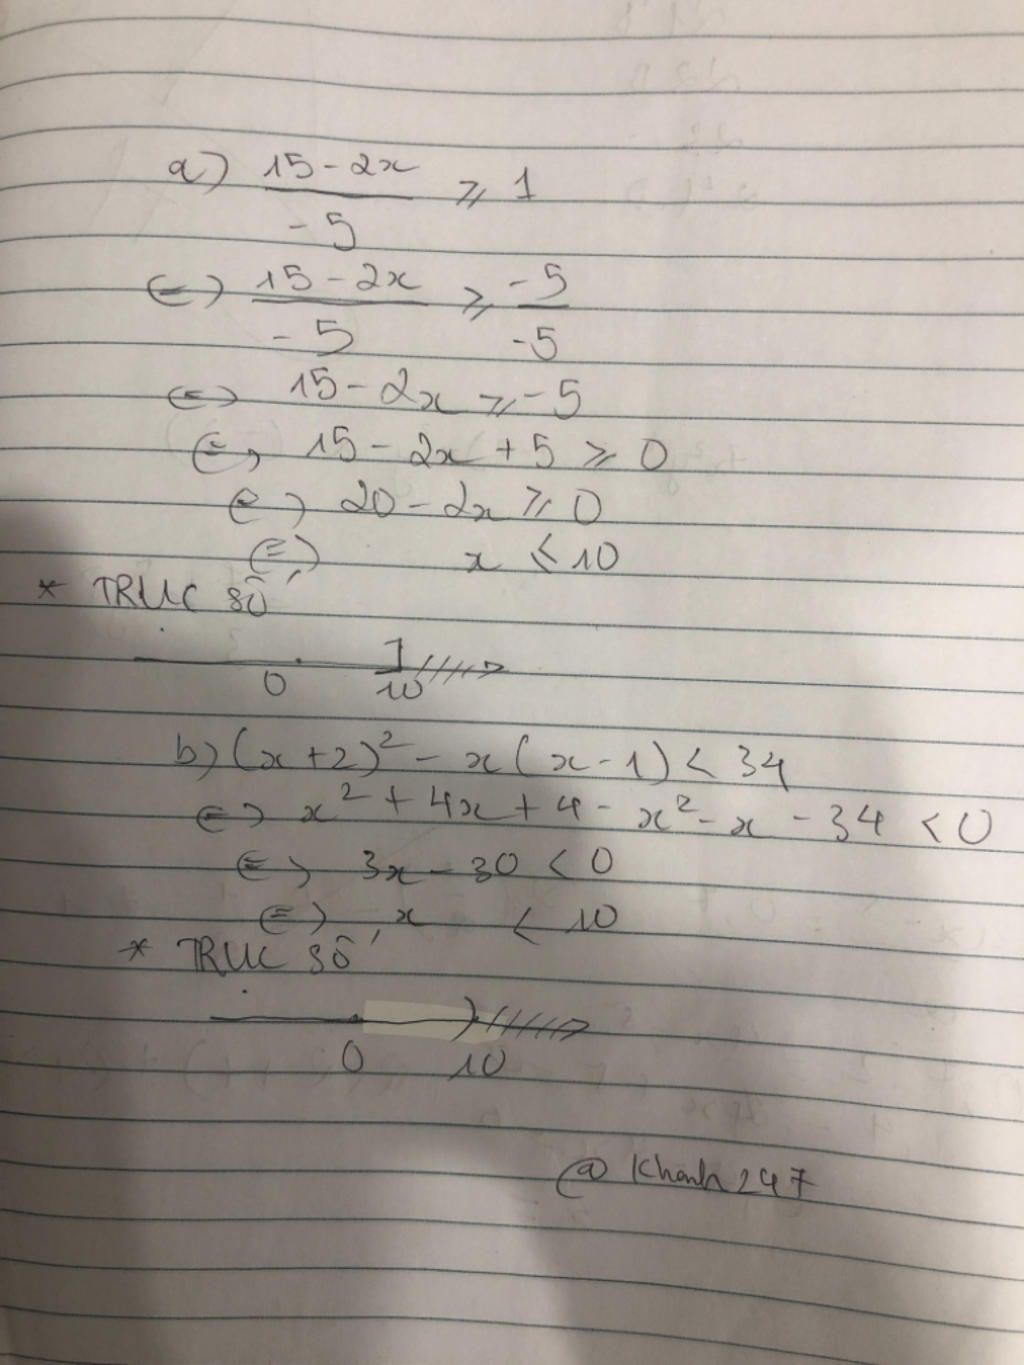 a) (15 - 2x)/(-5) ⩾ 1
⇔ (15 - 2x)/(-5) ⩾ (-5)/(-5)
⇔ 15 - 2x ⩾ -5
⇔ 15 - 2x + 5 ⩾ 0
⇔ 20 - 2x ⩾ 0
⇔ x ⩽ 10
* TRỤC SỐ
0 10
b) (x + 2)² - x(x - 1) < 34
⇔ x² + 4x + 4 - x² - x - 34 < 0
⇔ 3x - 30 < 0
⇔ x < 10
* TRỤC SỐ
0 10
@ Khanh247